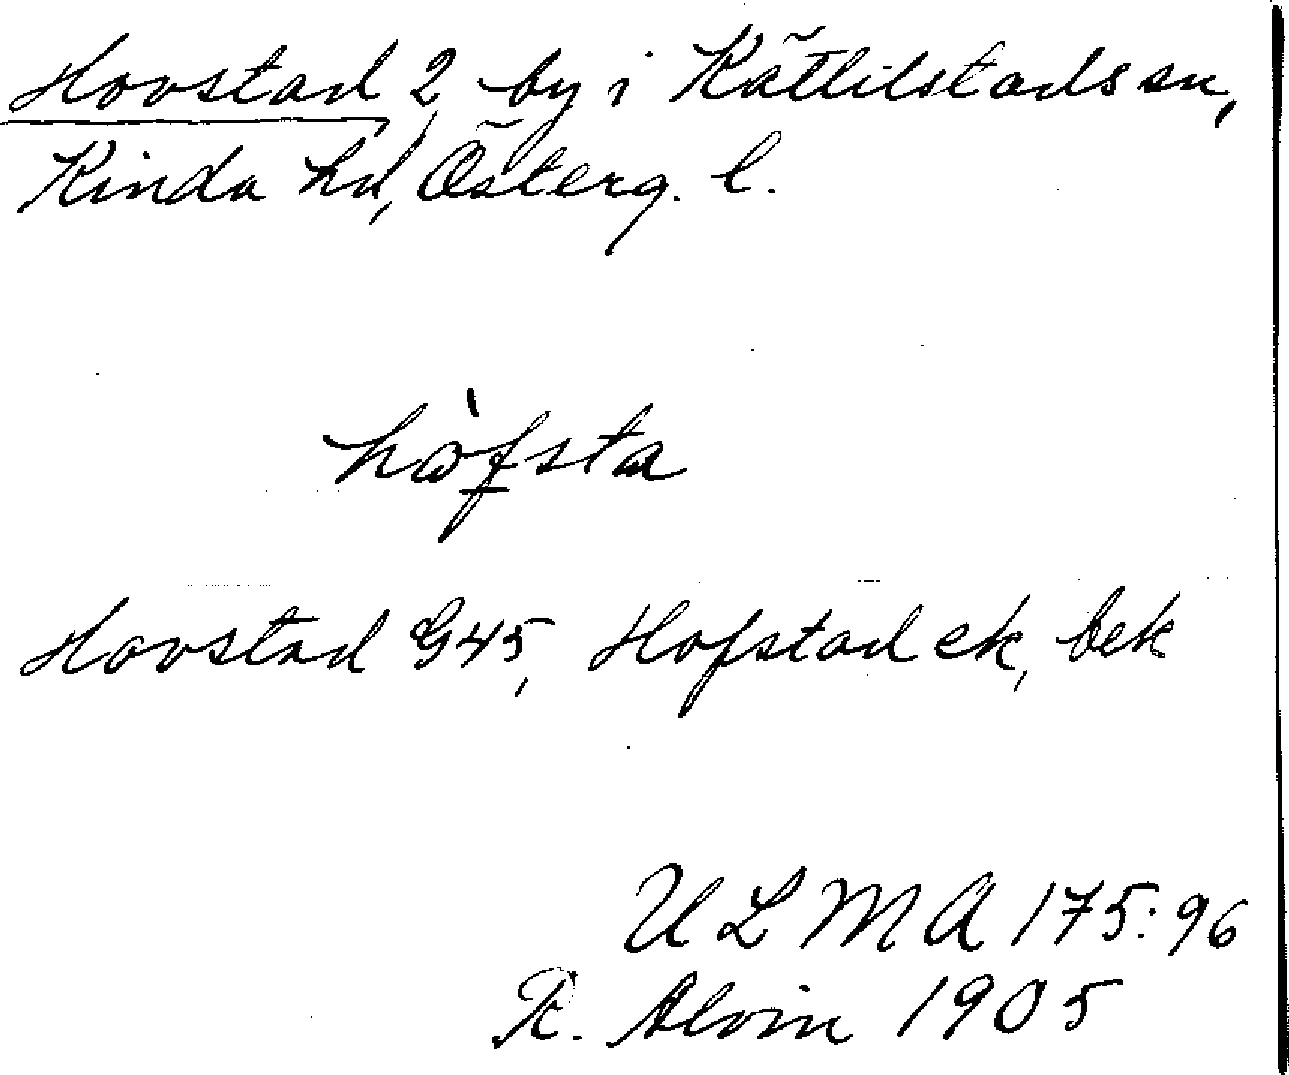 Hovstad 2 by i Kättilstads sn,
Kinda hd, Österg. l.
hòfsta
Hovstad G45, Hofstad ek, bek
ULMA 175:96
R. Alvin 1905